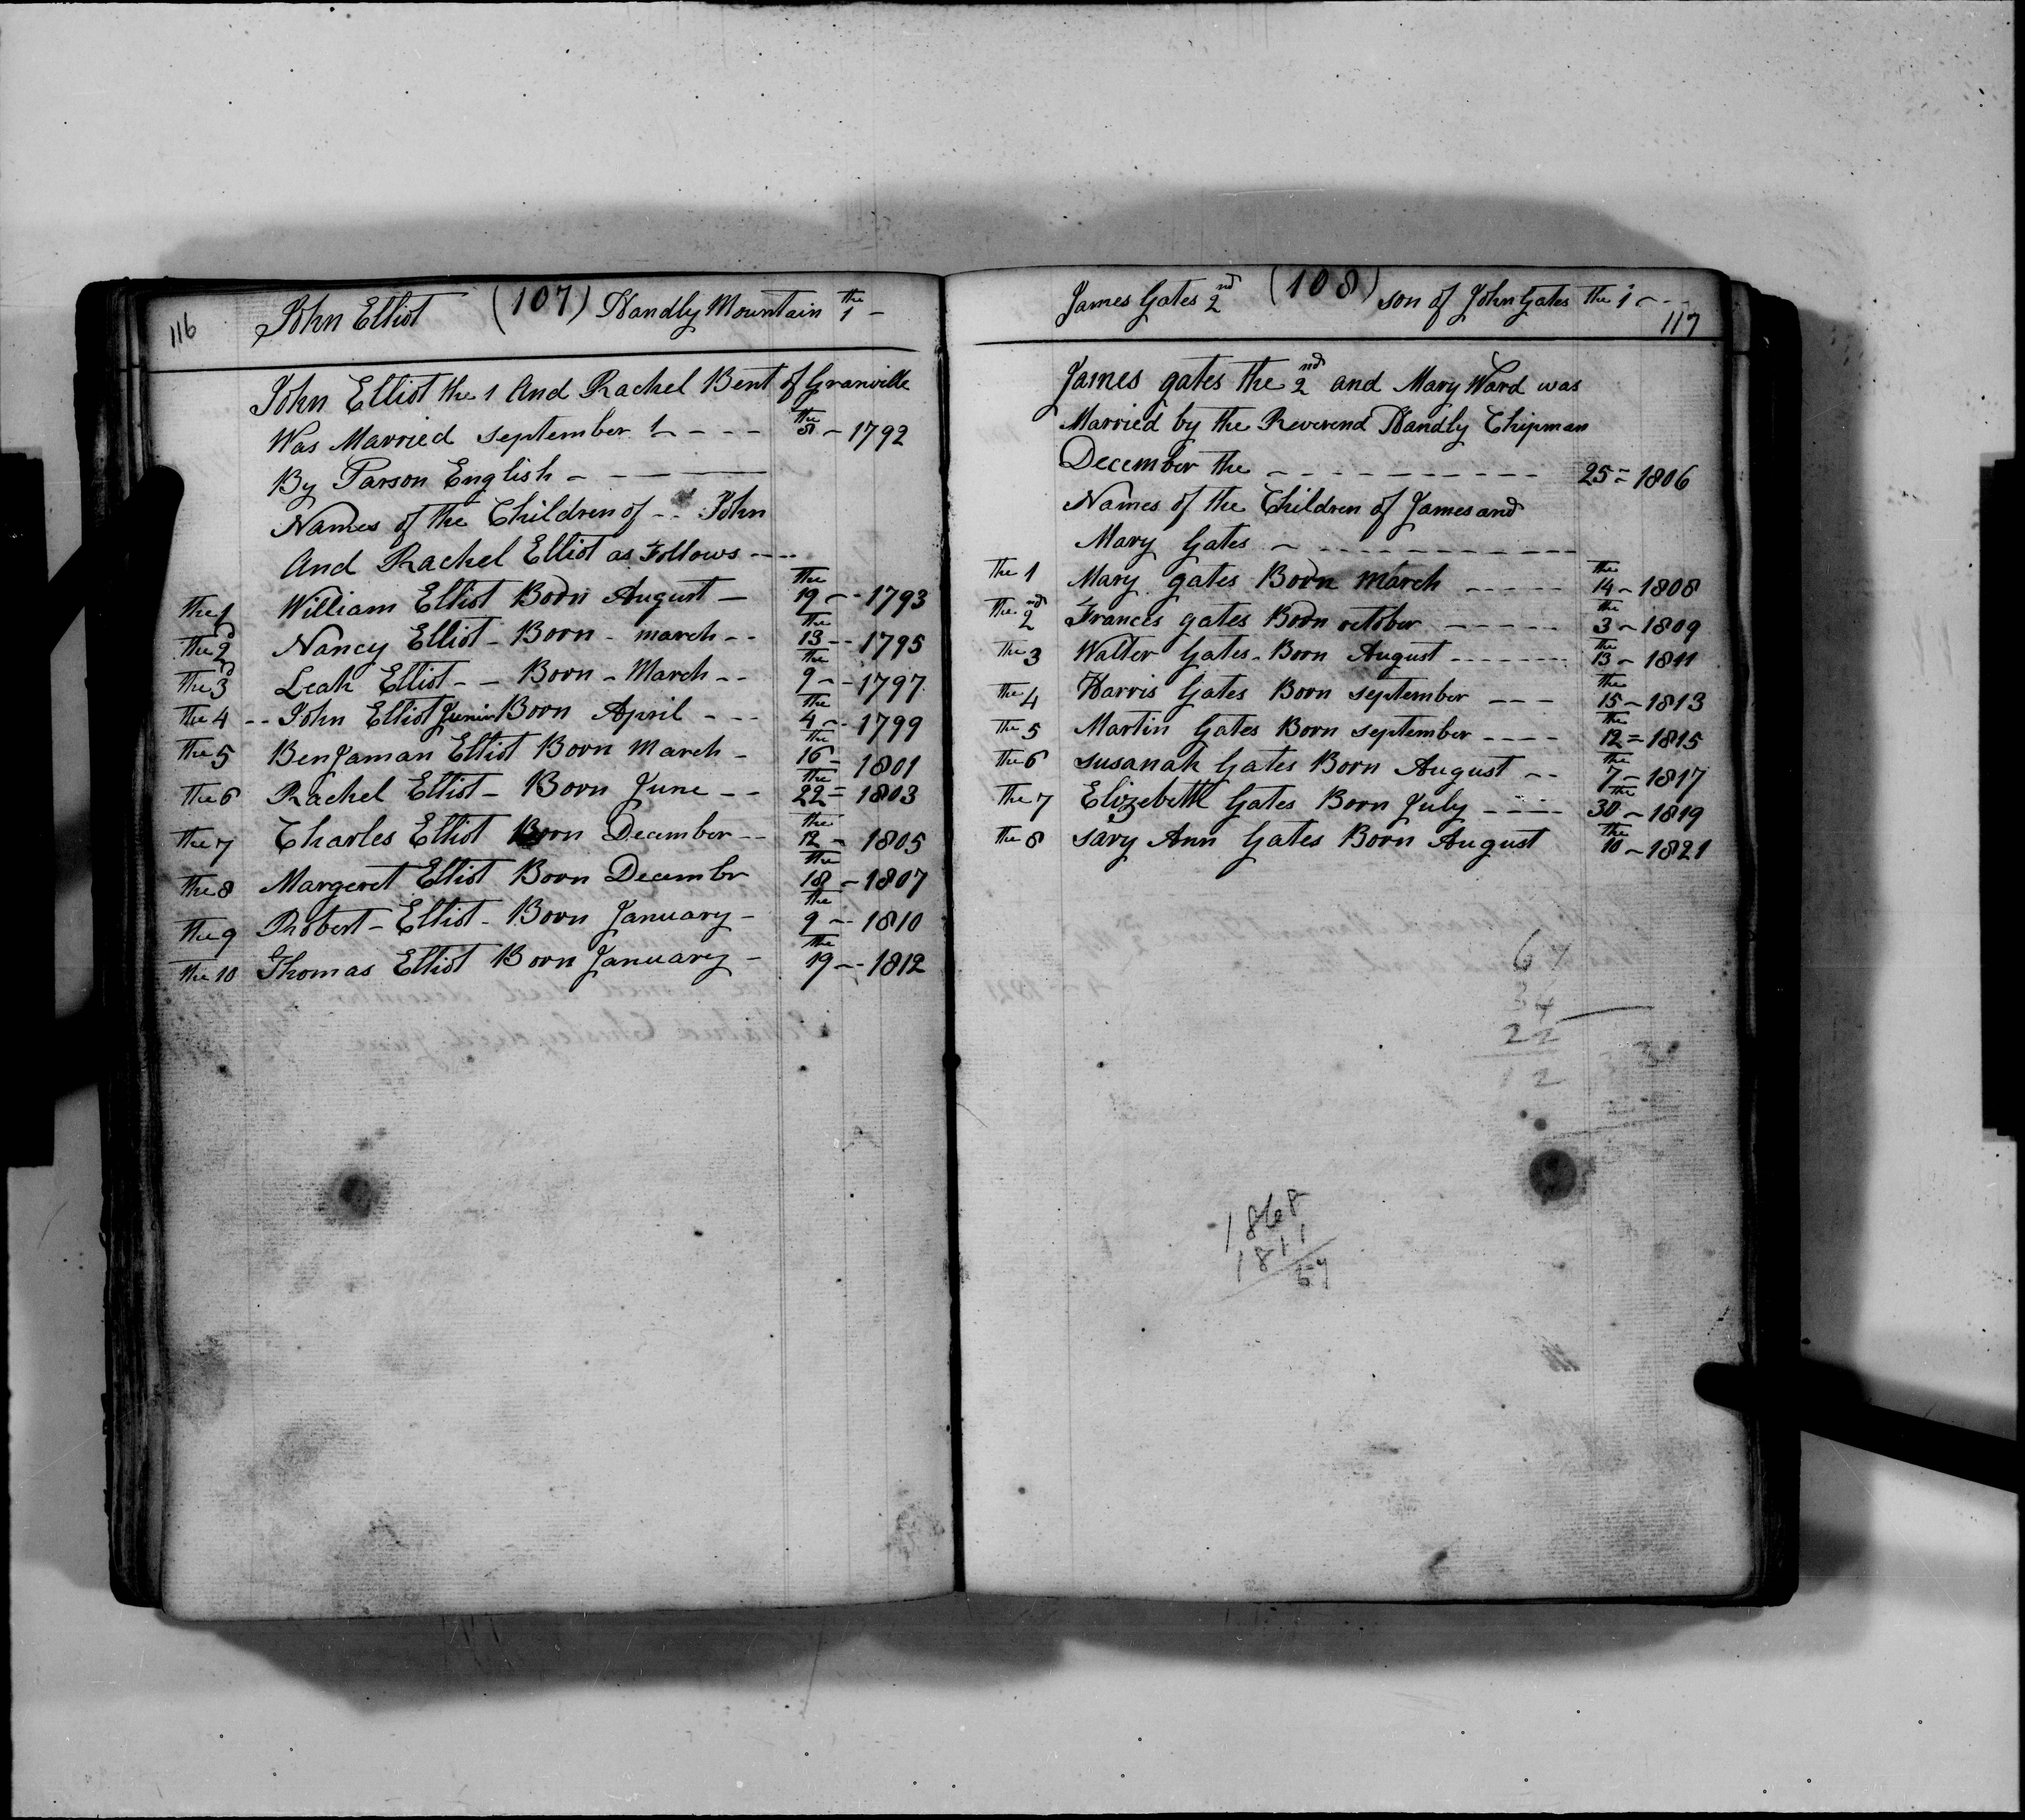 116 John Elliot (107) Handly Mountain the 1 -
John Elliot the 1 And Rachel Bent of Granville
Was Married september 1 - - - - the 8 - 1792
By Parson English - - - -
Names of the Children of - - John
And Rachel Elliot as Follows - - - -
the 1 William Elliot Born August - the 19 - - 1793
the 2d Nancy Elliot - Born - march - - the 13 - - 1795
the 3d Leah Elliot - - Born - March - - the 9 - - 1797
the 4 - - John Elliot Junior Born April - - - the 4 - - 1799
the 5 BenJaman Elliot Born March - the 16 - 1801
the 6 Rachel Elliot - Born June - - the 22 = 1803
the 7 Charles Elliot Born December - - the 12 - 1805
the 8 Margeret Elliot Born Decembr the 18 - 1807
the 9 Robert - Elliot - Born January - the 9 - - 1810
the 10 Thomas Elliot Born January - the 19 - - 1812
James Gates 2nd (108) son of John Gates the 1 - - -
117
James gates the 2nd and Mary Ward was
Married by the Reverend Handly Chipman
December the - - - - - - - - - - 25 = 1806
Names of the Children of James and
Mary Gates - - - - - - - - - -
the 1 Mary gates Born march - - - - - the 14 - 1808
the 2nd Frances gates Born october - - - - - the 3 - 1809
the 3 Walter Gates - Born August - - - - - - - the 13 - 1811
the 4 Harris Gates Born september - - - the 15 - 1813
the 5 Martin Gates Born september - - - - the 12 = 1815
the 6 susanah Gates Born August - - the 7 - 1817
the 7 Elizebeth Gates Born July - - - - the 30 - 1819
the 8 sary Ann Gates Born August the 10 - 1821
67
34
22
12
1868
1811
57